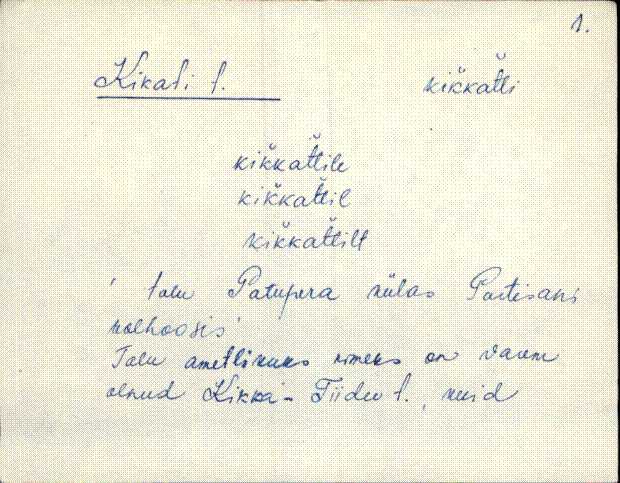 1.
Kikati t. kik̆kat̆ti
kik̆kat̆tile
kik̆kat̆til
kik̆kat̆tilt
' talu Patupera külas Partisani
kolhoosis'
Talu ametlikuks nimeks on varem
olnud Kikka-Tiidu t., kuid